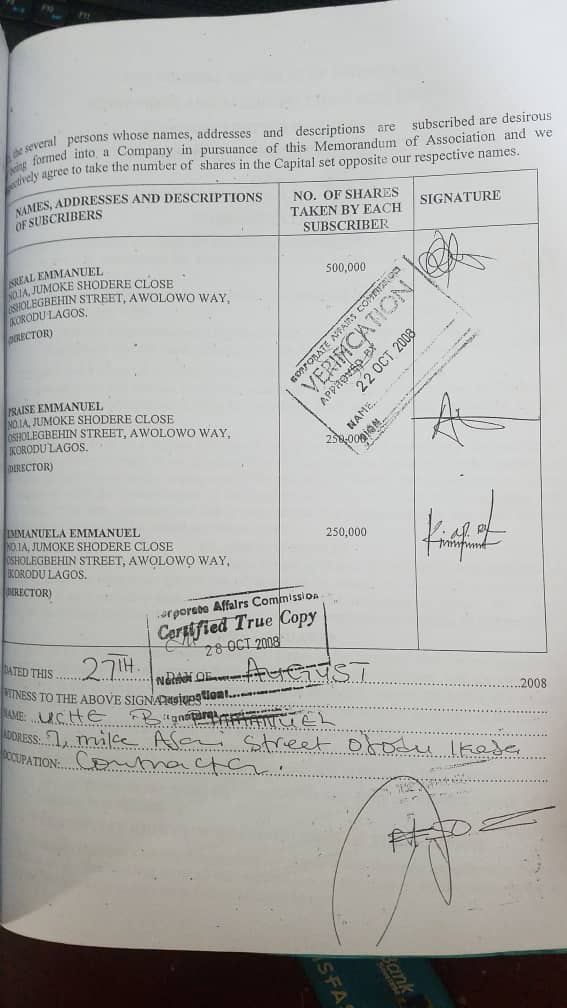 the several persons whose names, addresses and descriptions are subscribed are desirous
being formed into a Company in pursuance of this Memorandum of Association and we
pectively agree to take the number of shares in the Capital set opposite our respective names.
NAMES, ADDRESSES AND DESCRIPTIONS
OF SUBCRIBERS
NO. OF SHARES
TAKEN BY EACH
SUBSCRIBER
SIGNATURE
ISREAL EMMANUEL
NO.1A, JUMOKE SHODERE CLOSE
OSHOLEGBEHIN STREET, AWOLOWO WAY,
IKORODU LAGOS.
(DIRECTOR)
500,000
CORPORATE AFFAIRS COMMISSION
VERIFICATION
APPROVED BY
22 OCT 2008
NAME
SIGN
PRAISE EMMANUEL
NO.1A, JUMOKE SHODERE CLOSE
OSHOLEGBEHIN STREET, AWOLOWO WAY,
IKORODU LAGOS.
(DIRECTOR)
250,000
EMMANUELA EMMANUEL
NO.1A, JUMOKE SHODERE CLOSE
OSHOLEGBEHIN STREET, AWOLOWO WAY,
IKORODU LAGOS.
(DIRECTOR)
250,000
orporate Affairs Commission
Certified True Copy
28 OCT 2008
DATED THIS 27TH DAY OF AUGUST 2008
WITNESS TO THE ABOVE SIGNATURES
NAME: UCHE
ADDRESS: 7, mike Street Ojodu Ikeja
OCCUPATION: Contractor.
Bank